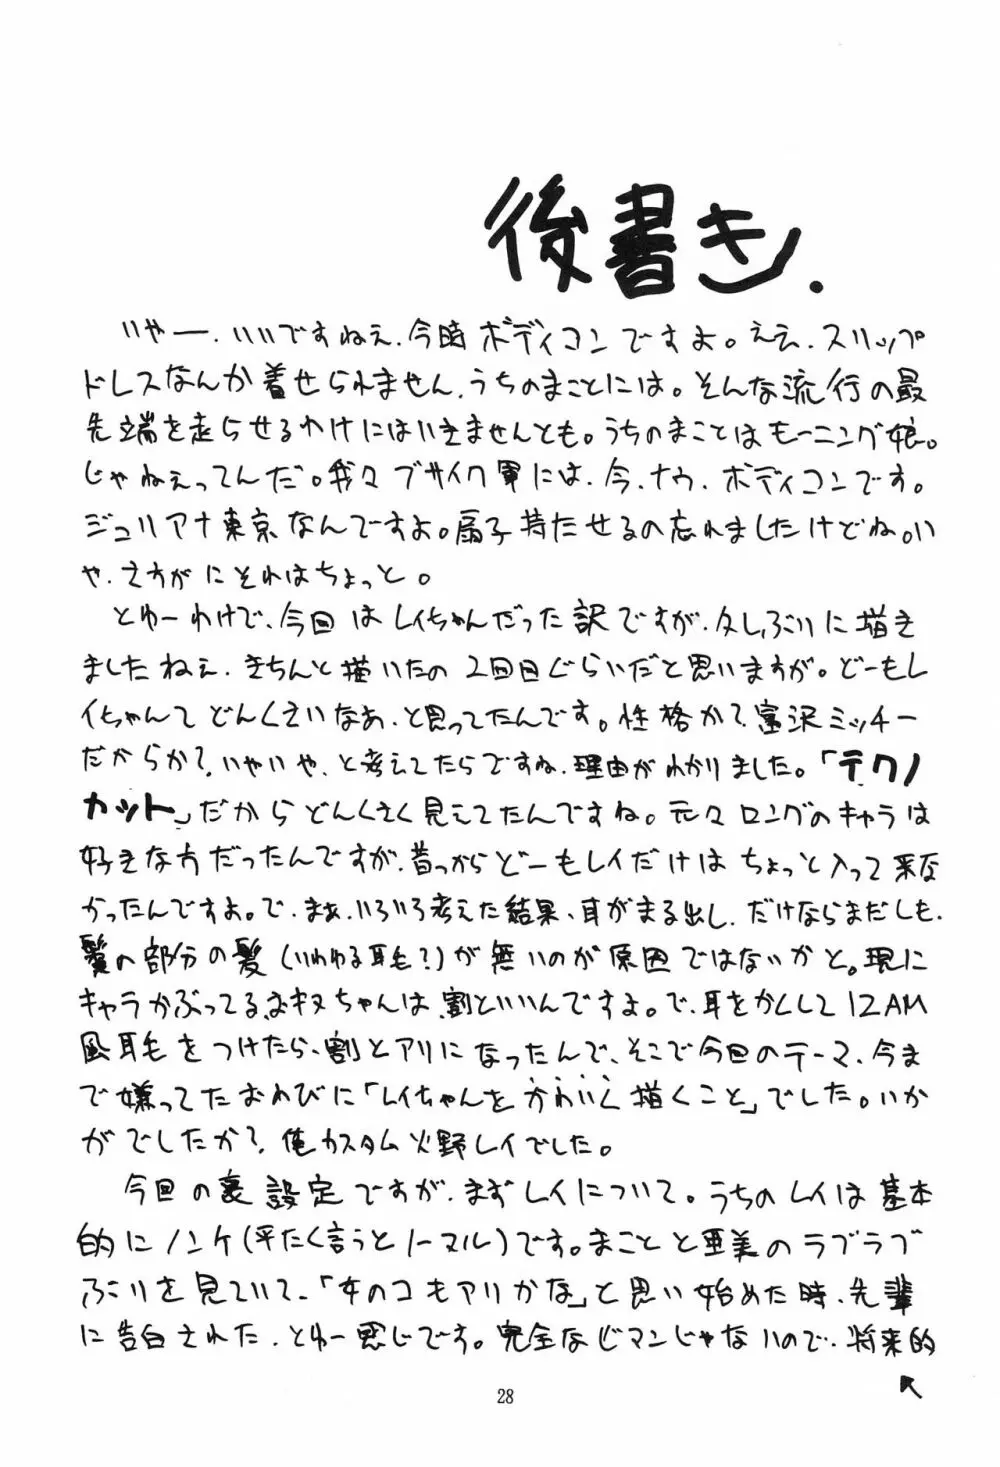 後書き.
いやー、いいですねえ、今時ボディコンですよ。ええ、スリップ
ドレスなんか着せられません、うちのまことには。そんな流行の最
先端を走らせるわけにはいきませんとも。うちのまことはモーニング娘。
じゃねえってんだ。我々ブサイク軍には、今、ナウ、ボディコンです。
ジュリアナ東京なんですよ。扇子持たせるの忘れましたけどね。い
や、さすがにそれはちょっと。
とゆーわけで、今回はレイちゃんだった訳ですが、久しぶりに描き
ましたねえ、きちんと描いたの2回目ぐらいだと思いますが。どーもレ
イちゃんてどんくさいなあ、と思ってたんです。性格か?富沢ミッチー
だからか?、いやいや、と考えてたらですね、理由がわかりました。「テクノ
カット」だからどんくさく見えてたんですね。元々ロングのキャラは
好きな方だったんですが、昔っからどーもレイだけはちょっと入って来な
かったんですよ。で、まぁ、いろいろ考えた結果、耳がまる出し、だけならまだしも、
鬢の部分の髪(いわゆる耳毛?)が無いのが原因ではないかと。現に
キャラかぶってるおキヌちゃんは、割といいんですよ。で、耳をかくして12AM
風耳毛をつけたら、割とアリになったんで、そこで今回のテーマ、今ま
で嫌ってたおわびに「レイちゃんをかわいく描くこと」でした。いか
がでしたか?、俺カスタム火野レイでした。
今回の裏設定ですが、まずレイについて。うちのレイは基本
的にノンケ(平たく言うとノーマル)です。まことと亜美のラブラブ
ぶりを見ていて、「女のコもアリかな」と思い始めた時、先輩
に告白された、とゆー感じです。完全なビアンじゃないので、将来的
28